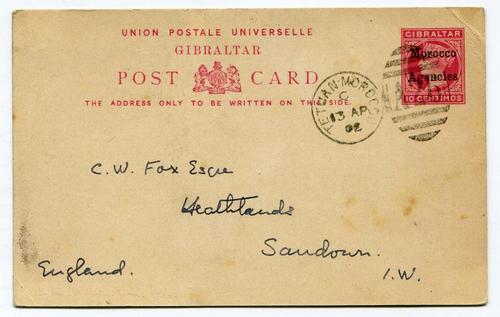 UNION POSTALE UNIVERSELLE
GIBRALTAR
POST CARD
THE ADDRESS ONLY TO BE WRITTEN ON THIS SIDE.
GIBRALTAR
Morocco
Agencies
10 CENTIMOS
TETUAN-MOROCCO
C
13 AP
02
C. W. Fox Esqre
Heathlands
Sandown.
England.
I.W.